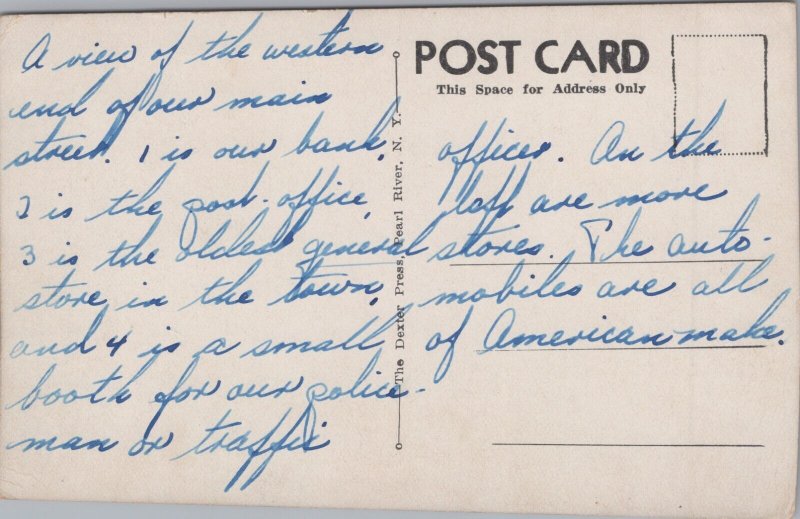 A view of the western
end of our main
street. 1 is our bank,
2 is the post-office,
3 is the oldest general
store in the town,
and 4 is a small
booth for our police-
man or traffic
officer. On the
left are more
stores. The auto-
mobiles are all
of American make.
POST CARD
This Space for Address Only
The Dexter Press, Pearl River, N. Y.